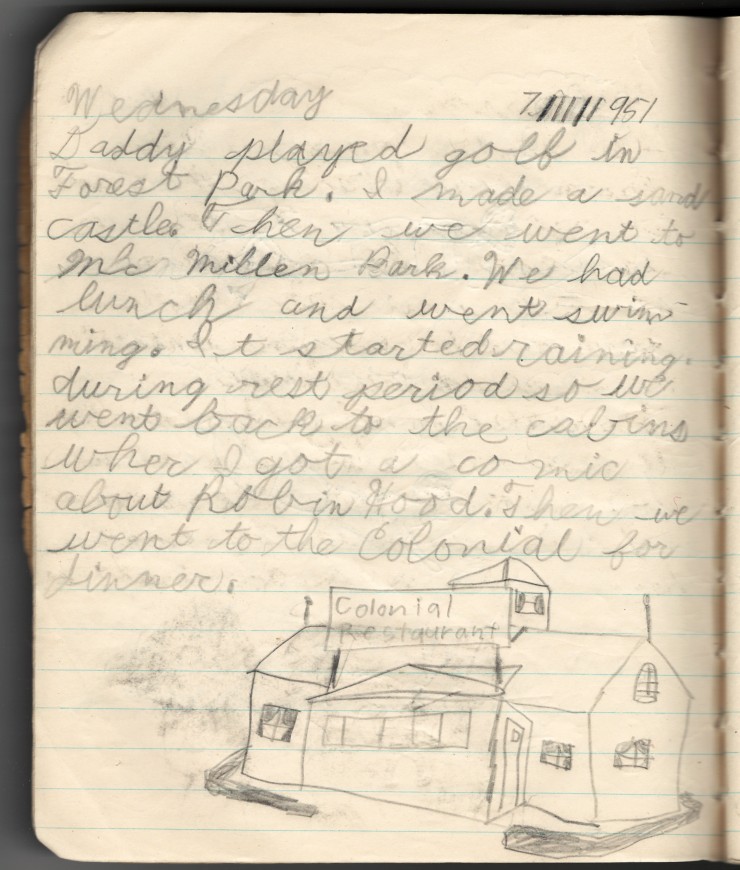 Wednesday 7 1951
Daddy played golf in
Forest Park. I made a sand
castle. Then we went to
Mc Millen Park. We had
lunch and went swim-
ming. It started raining.
during rest period so we
went back to the cabins
wher I got a comic
about Robin Hood. Then we
went to the Colonial for
dinner.
Colonial
Restaurant